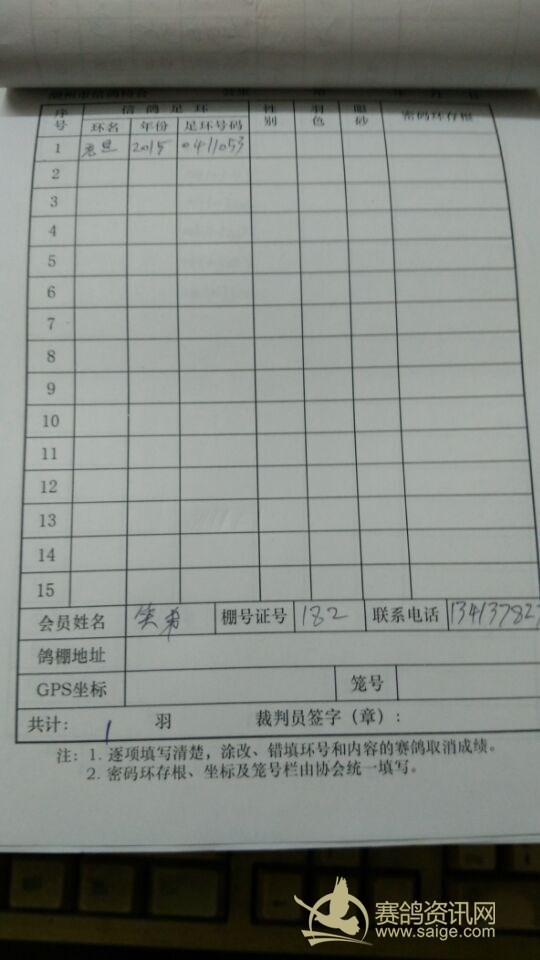 序号 信鸽足环 性别 羽色 眼砂 密码环存根
环名 年份 足环号码
1 元旦 2015 0411053
2
3
4
5
6
7
8
9
10
11
12
13
14
15
会员姓名 棚号证号 182 联系电话 13413782
鸽棚地址
GPS坐标 笼号
共计: 1 羽 裁判员签字(章):
注: 1. 逐项填写清楚,涂改、错填环号和内容的赛鸽取消成绩。
2. 密码环存根、坐标及笼号栏由协会统一填写。
赛鸽资讯网
www.saige.com